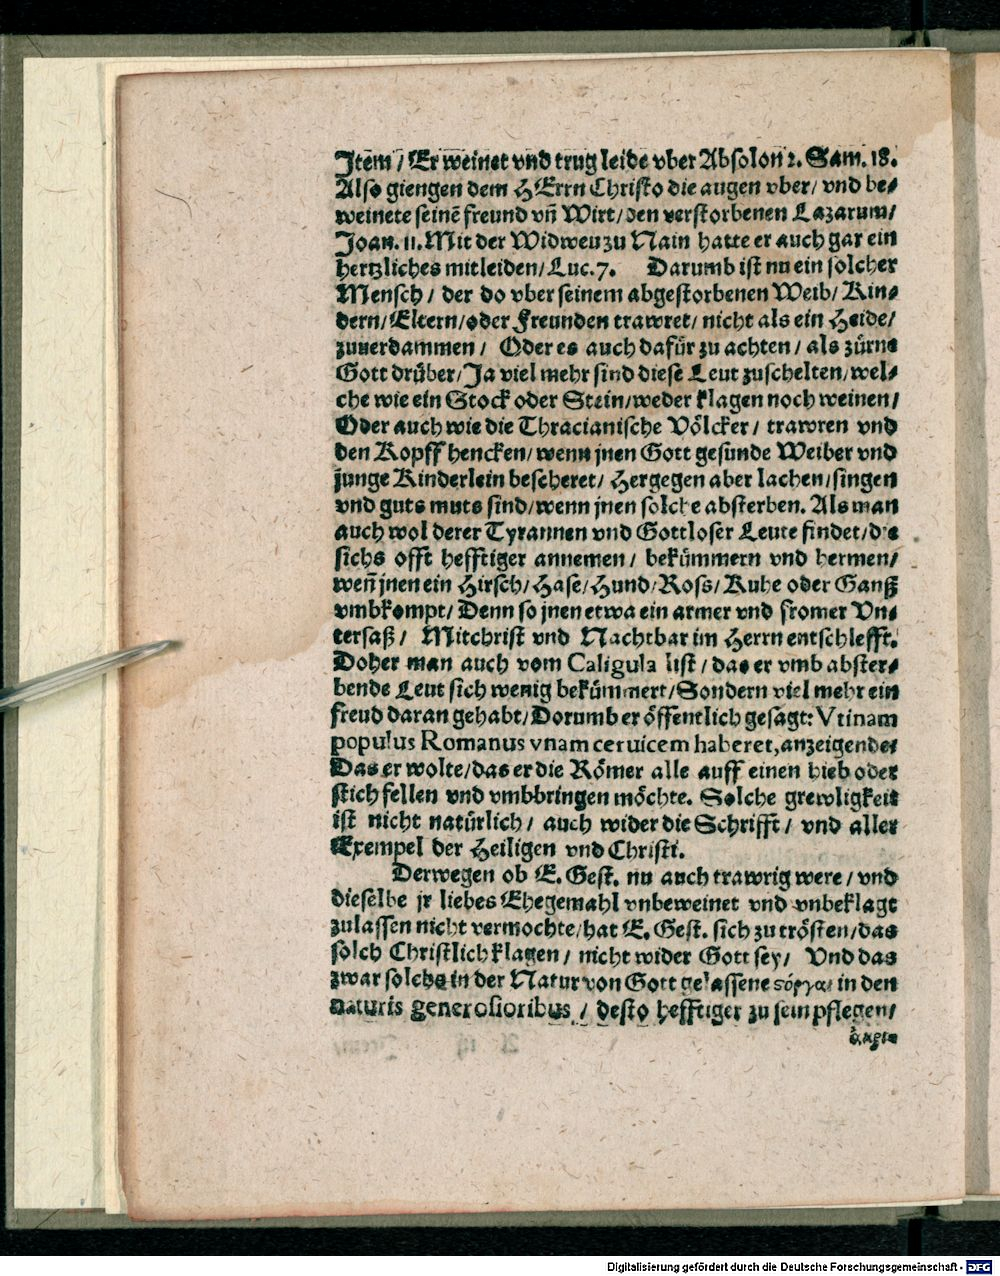 Jtem / Er weinet vnd trug leide vber Absolon 2. Sam. 18.
Also giengen dem HErrn Christo die augen vber / vnd be⸗
weinete seinē freund vñ Wirt / den verstorbenen Lazarum /
Joan. 11. Mit der Widwen zu Nain hatte er auch gar ein
hertzliches mitleiden / Luc. 7. Darumb ist nu ein solcher
Mensch / der do vber seinem abgestorbenen Weib / Kin⸗
dern / Eltern / oder Freunden trawret / nicht als ein Heide /
zuuerdammen / Oder es auch dafür zu achten / als zürne
Gott drüber / Ja viel mehr sind diese Leut zuschelten / wel⸗
che wie ein Stock oder Stein / weder klagen noch weinen /
Oder auch wie die Thracianische Völcker / trawren vnd
den Kopff hencken / wenn jnen Gott gesunde Weiber vnd
junge Kinderlein bescheret / Hergegen aber lachen / singen
vnd guts muts sind / wenn jnen solche absterben. Als man
auch wol derer Tyrannen vnd Gottloser Leute findet / die
sichs offt hefftiger annemen / bekümmern vnd hermen /
weñ jnen ein Hirsch / Hase / Hund / Ross / Kuhe oder Ganß
vmbkompt / Denn so jnen etwa ein armer vnd fromer Vn⸗
tersaß / Mitchrist vnd Nachtbar im Herrn entschlefft.
Doher man auch vom Caligula list / das er vmb abster⸗
bende Leut sich wenig bekümmert / Sondern viel mehr ein
freud daran gehabt / Dorumb er öffentlich gesagt: Vtinam
populus Romanus vnam ceruicem haberet, anzeigende:
Das er wolte / das er die Römer alle auff einen hieb oder
stich fellen vnd vmbbringen möchte. Solche grewligkeit
ist nicht natürlich / auch wider die Schrifft / vnd aller
Exempel der Heiligen vnd Christi.
Derwegen ob E. Gest. nu auch trawrig were / vnd
dieselbe jr liebes Ehegemahl vnbeweinet vnd vnbeklagt
zulassen nicht vermochte / hat E. Gest. sich zu trösten / das
solch Christlich klagen / nicht wider Gott sey / Vnd das
zwar solche in der Natur von Gott gelassene ςόργαι in den
naturis generosioribus / desto hefftiger zu sein pflegen /
Digitalisierung gefördert durch die Deutsche Forschungsgemeinschaft - DFG